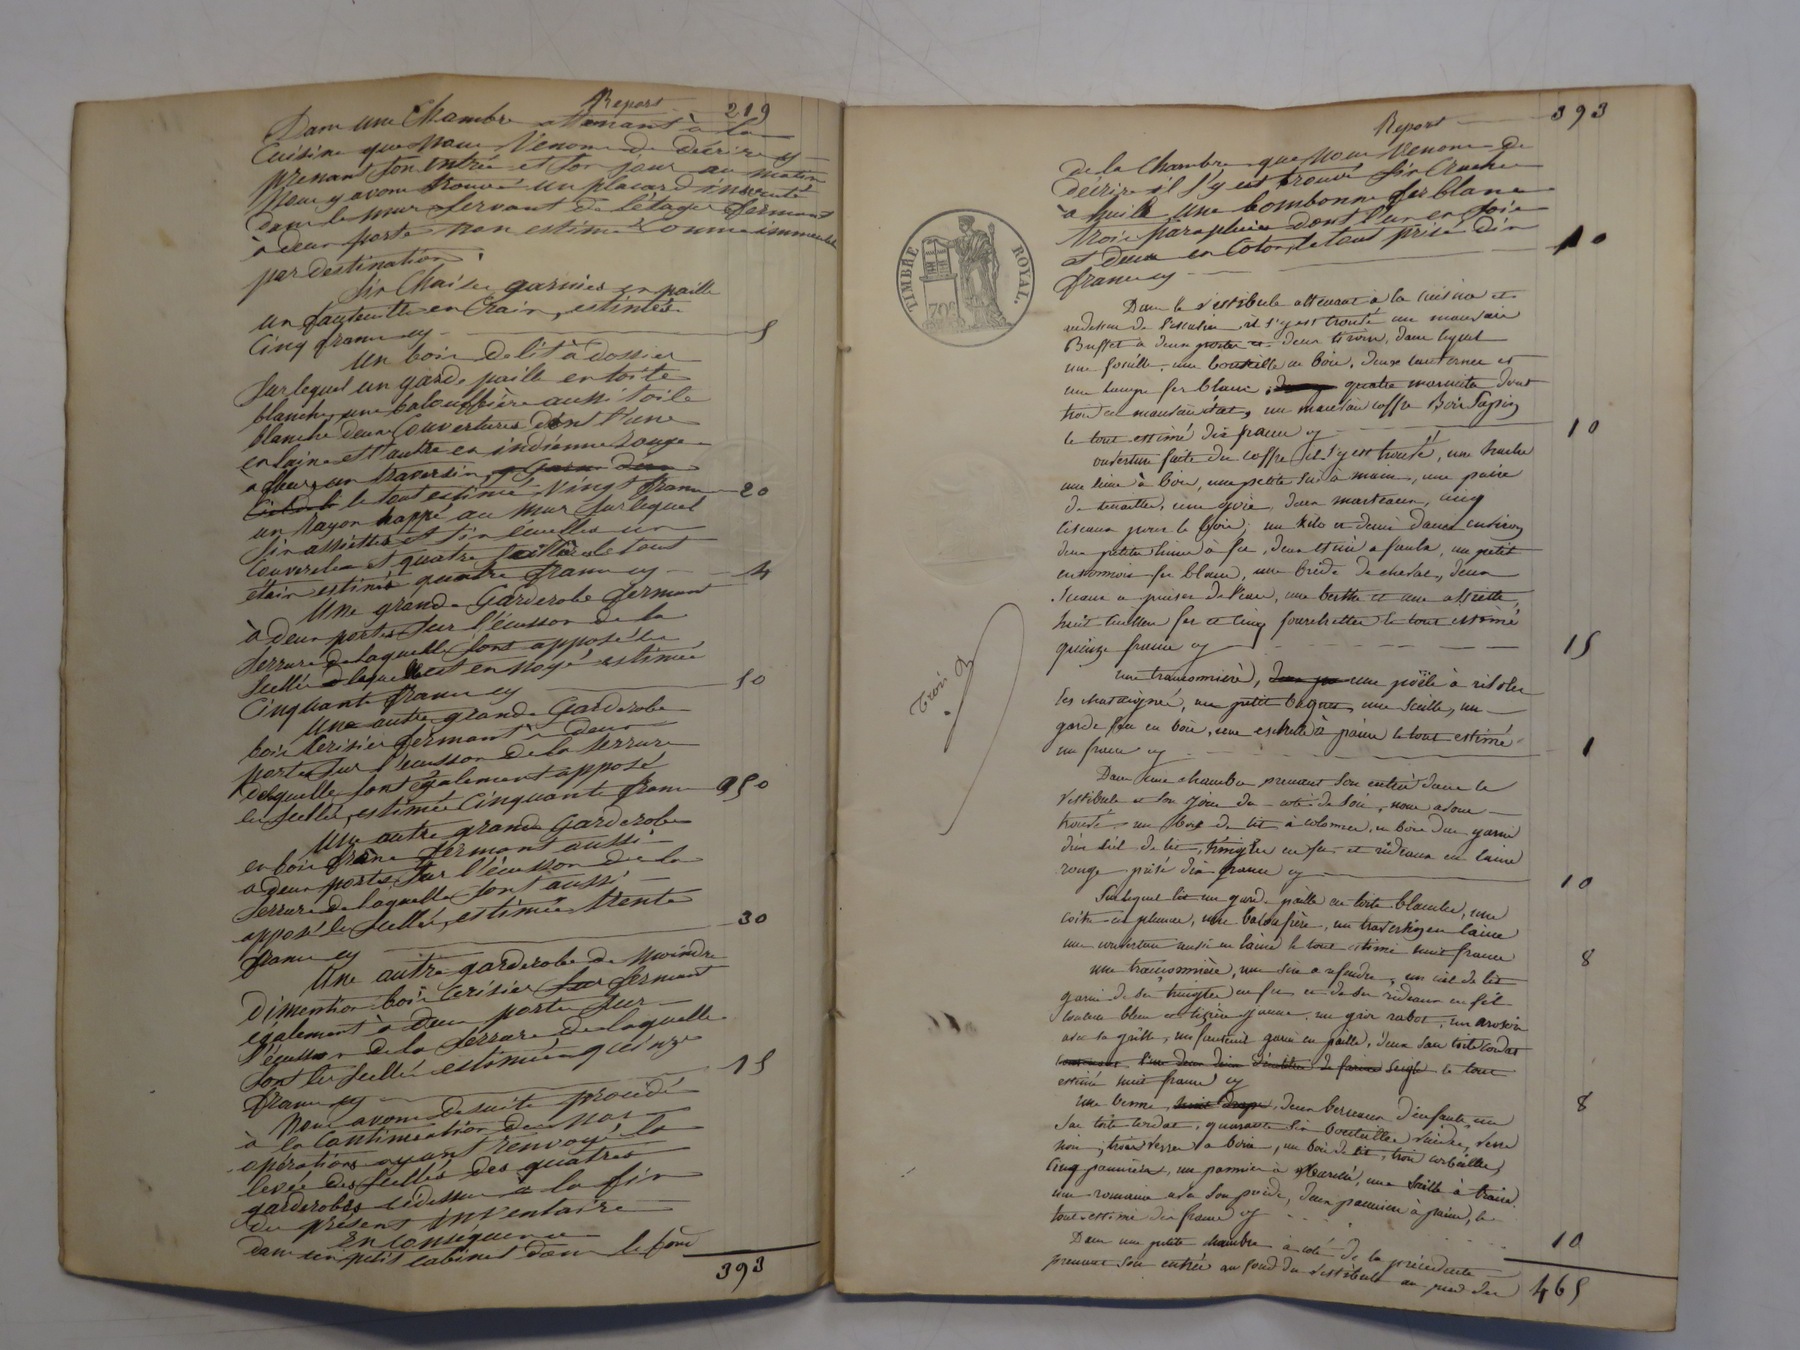 Report 219
Dans une Chambre attenant à la
Cuisine que nous Venons de décrire cy
prenant son entrée et son jour au matin
Nous y avons trouvé un placard incrusté
dans le mur servant de l'étage fermant
à deux portes non estimé comme immeuble
par destination.
Six Chaises garnies en paille
un fauteuille en Crain, estimés
Cinq francs cy 5
Un bois de lit à dossier
sur lequel un garde paille en toile
blanche, une balouffière aussi toile
blanche deux Couvertures dont l'une
en laine et l'autre en indienne rouge
à fleurs, un traversin,
le tout estimé Vingt francs 20
un Rayon happé au mur sur lequel
six assiettes et six écuelles un
couvercle et quatre le tout
étain estimés quatre francs cy 4
Une grande Garderobe fermant
à deux portes sur l'écusson de la
serrure de laquelle sont apposé les
scellés laquelle est en Noyé estimée
Cinquante francs cy 50
Une autre grande Garderobe
bois Cerisier fermant à deux
portes sur l'écusson de la serrure
delaquelle sont également apposé
les scellés, estimée Cinquante francs 50
Une autre grande Garderobe
en bois frêne fermant aussi
à deux portes, sur l'écusson de la
serrure de laquelle sont aussi
apposé les scellés, estimée trente
francs cy 30
Une autre garderobe de moindre
dimention bois Cerisier fermant
également à deux portes sur
l'écusson de la serrure de laquelle
sont les scellés estimée quinze
francs cy 15
Nous avons de suite procédé
à la Continuation de nos
opérations ayant renvoyé la
levée des scellés des quatres
garderobes cidessus à la fin
du présent inventaire
En Conséquence
dans un petit cabinet dans le fond
393
Report 393
de la Chambre que nous Venons de
décrire il s'y est trouvé six Cruches
à huile une bombonne fer blanc
trois parapluies dont l'un en soie
et deux en Coton, le tout prisé dix
francs cy 10
TIMBRE ROYAL
Dans le vestibule attenant à la cuisine et
audessus de l'escalier, il s'y est trouvé un mauvais
Buffet à deux portes et deux tiroirs, dans lequel
une bouteille en bois, deux lanternes et
une lampe fer blanc, quatre marmites dont
trois en mauvais état, un mauvais coffre Bois Sapin
le tout estimé dix francs cy 10
ouverture faite du coffre il s'y est trouvé, une hache
une lime à bois, une petite scie à main, une paire
de tenailles, deux marteaux, cinq
ciseaux pour le bois, un kilo et demi environ
deux petites limes à fer, un petit
entonnoir fer blanc, une bride de cheval, deux
à puiser de l'eau, une berthe et une assiette,
huit cuillers fer et cinq fourchettes le tout estimé
quinze francs cy 15
une une poële à
les chataignes, un petit une seille, un
garde feu en bois, une à pain le tout estimé
un franc cy 1
Dans une chambre prenant son entrée dans le
vestibule et son jour du coté de soir, nous avons
trouvé un bois de lit à colonnes, en bois dur garni
d'un ciel de lit, tringles en fer et rideaux en laine
rouge prisé dix francs cy 10
Sur lequel lit un garde paille en toile blanche, une
coitre en plumes, une baloufière, un traversin en laine
une couverture aussi en laine le tout estimé huit francs 8
une une scie à refendre, un ciel de lit
garni de ses tringles en fer et de ses rideaux en fil
couleur bleu et lizière jaune, un gros rabot, un arosoir
avec sa grille, un fauteuil garni en paille, deux sacs toile cordat
le tout
estimé huit francs cy 8
une benne, deux berceaux d'enfants, un
sac toile cordat, quarante six bouteilles vuides, verre
noir, trois verres à boire, un bois de lit, trois corbeilles,
Cinq panniers, un pannier à Marché, une seille à traire
une romaine avec son poids, deux panniers à pain, le
tout estimé dix francs cy 10
Dans une petite chambre à coté de la précédente
prenant son entrée au fond du vestibule au pied des
465